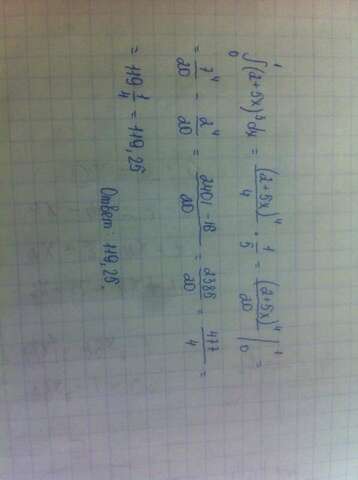 ∫₀¹ (2+5x)³dx = (2+5x)⁴/4 · 1/5 = (2+5x)⁴/20 |₀¹ =
= 7⁴/20 - 2⁴/20 = 2401-16/20 = 2385/20 = 477/4 =
= 119 1/4 = 119,25
Ответ: 119,25.